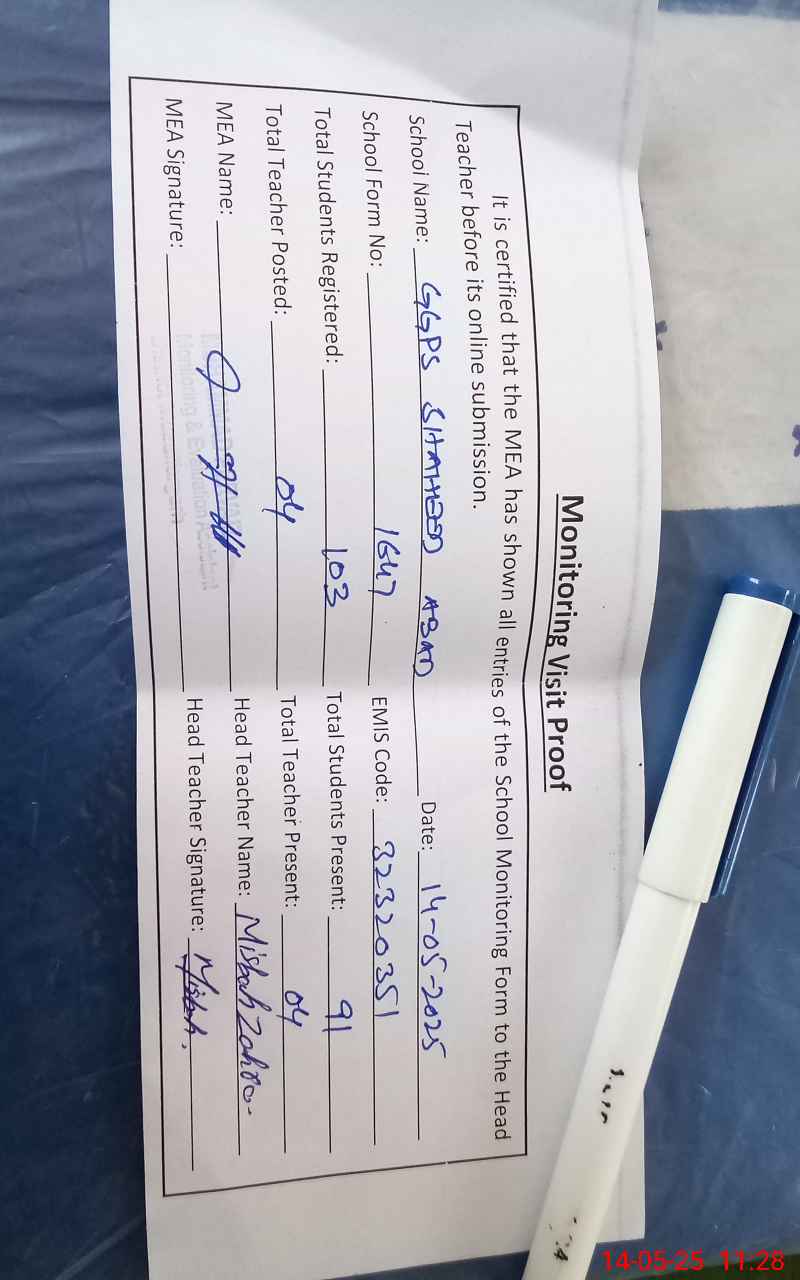 Monitoring Visit Proof
It is certified that the MEA has shown all entries of the School Monitoring Form to the Head
Teacher before its online submission.
School Name: GGPS SHAHEED ABAD Date: 14-05-2025
School Form No: 1647 EMIS Code: 32320351
Total Students Registered: 103 Total Students Present: 91
Total Teacher Posted: 04 Total Teacher Present: 04
MEA Name: Head Teacher Name: Misbah Zahra
MEA Signature: Head Teacher Signature: Misbah.
Monitoring & Evaluation Assistant
14-05-25 11:28